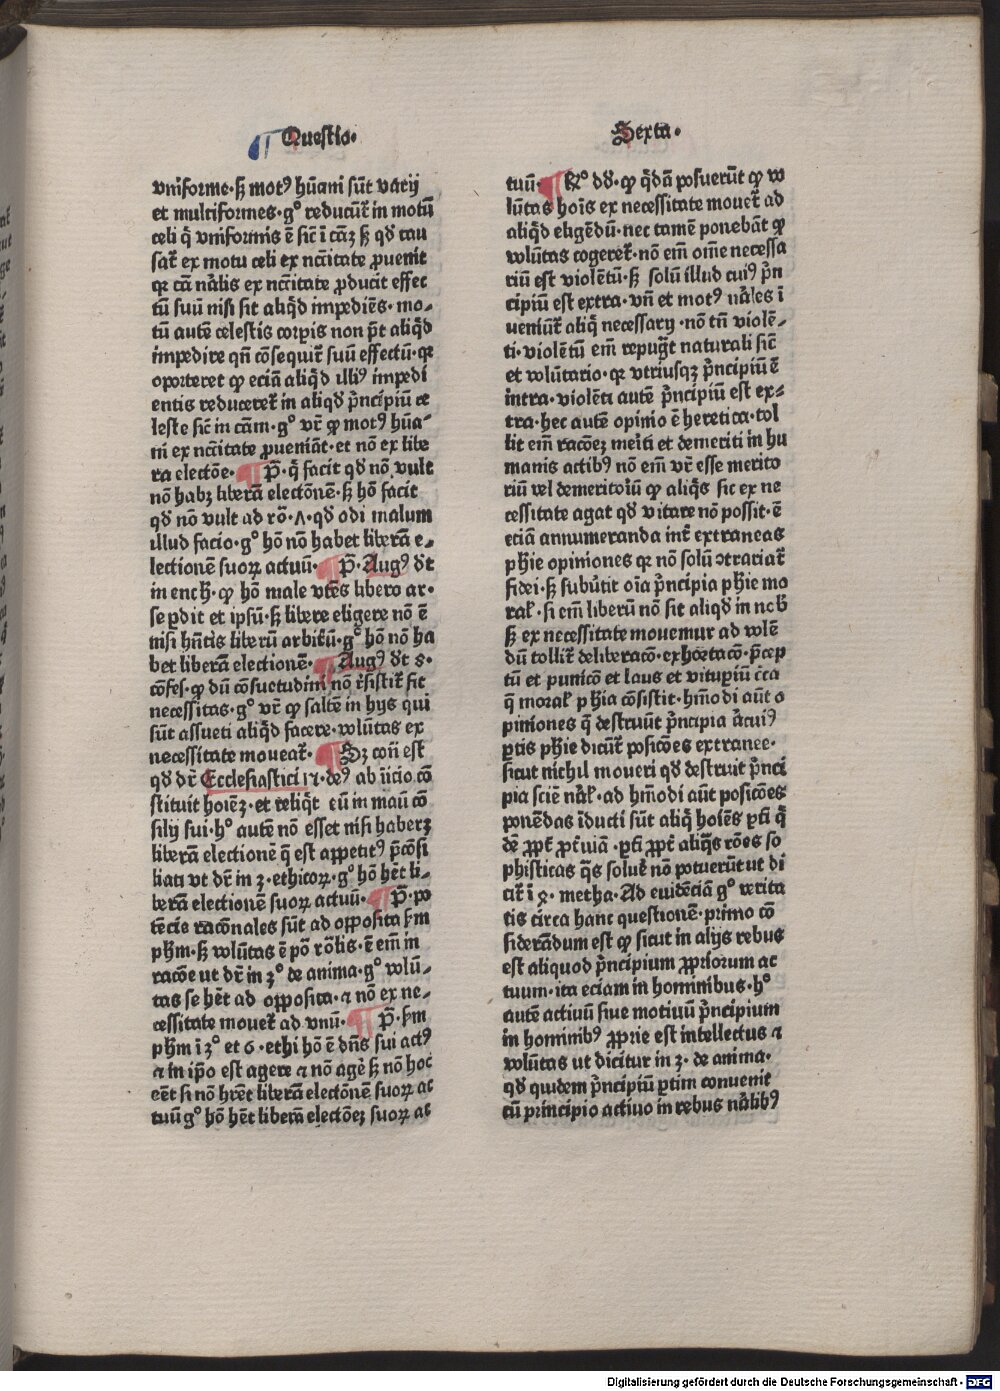 ¶ Questio·
vniforme·sꝫ motꝰ hūani sūt varij
et multiformes·gᵒ reducūt᷑ in motū
celi q̇ vniformis ē sic̄ ī cāꝫ sꝫ qđ cau
sat᷑ ex motu celi ex nc̄citate ꝓuenit
qꝛ cā nālis ex nc̄citate ꝓducit effec
tū suū nisi sit aliq̇d impediēs· mo-
tū autē celestis corꝑis non p̄t aliq̇d
impedire qn̄ cōsequit᷑ suū effectū·qꝛ
oporteret ꝙ eciā aliq̇d illiꝰ impedi
entis reduceret᷑ in aliqđ p̄ncipiū ce
leste sic̄ in cām·gᵒ vr̄ ꝙ motꝰ hūa-
ni ex nc̄citate ꝓueniāt·et nō ex libe
ra electōe· ¶ P̄·q̇ facit qđ nō vult
nō habꝫ liberā electōnē·sꝫ hō facit
qđ nō vult ad rō·ʌ·qđ odi malum
illud facio·gᵒ hō nō habet liberā e-
lectionē suoꝝ actuū· ¶ P̄·Augꝰ dt̄
in ench̄·ꝙ hō male vtēs libero ar-
se ꝑdit et ipsū·sꝫ libere eligere nō ē
nisi hn̄tis liberū arbit᷑ū·gᵒ hō nō ha
bet liberā electionē· ¶ Augꝰ dt̄ 8·
cōfes·ꝙ dū cōsuetudini nō r̄sistit᷑ fit
necessitas·gᵒ vr̄ ꝙ saltē in hys qui
sūt assueti aliq̇d facere·volūtas ex
necessitate moueat᷑· ¶ Sꝫ con̄ est
qđ dr̄ Ecclesiastici 1ꝛ·deꝰ ab īicio cō
stituit hoiēꝫ·et reliq̇t eū in manū cō
silij sui·hᵒ autē nō esset nisi haberꝫ
liberā electionē q̄ est appetitꝰ p̄cōsi
liati vt dr̄ in 3·ethicoꝝ·gᵒ hō hēt li-
berā electionē suoꝝ actuū· ¶ P̄·po
tēcie racōnales sūt ad opposita sm̄
phm̄·sꝫ volūtas ē pō rōlis·ē em̄ in
racōe ut dr̄ in 3ᵒ de anima·gᵒ volū-
tas se hēt ad opposita·⁊ nō ex ne-
cessitate mouet᷑ ad vnū· ¶ P̄·sm̄
phm̄ ī 3ᵒ et 6·ethi hō ē dn̄s sui actꝰ
⁊ in ip̄o est agere ⁊ nō agē sꝫ nō hoc
eēt si nō hr̄et liberā electōnē suoꝝ ac
tuū gᵒ hō hēt liberā electōeꝫ suoꝝ ac
Sexta·
tuū· ¶ Rᵒ dđ·ꝙ q̇dā posuerūt ꝙ vo
lūtas hoīs ex necessitate mouet᷑ ad
aliq̇d eligēdū·nec tamē ponebāt ꝙ
volūtas cogeret᷑·nō em̄ om̄e necessa
riū est violētū·sꝫ solū illud cuiꝰ p̄n
cipiū est extra·vn̄ et motꝰ nāles ī
ueniūt᷑ aliq̇ necessarij·nō tn̄ violē-
ti·violētū em̄ repug̃t naturali sic̄
et volūtario·qꝛ vtriusqꝫ p̄ncipiū ē
intra·violēti autē p̄ncipiū est ex-
tra·hec autē opinio ē heretica·tol
lit em̄ racōeꝫ meriti et demeriti in hu
manis actibꝰ nō em̄ vr̄ esse merito
riū vel demeritoriū ꝙ aliq̇s sic ex ne
cessitate agat qđ vitare nō possit·ē
eciā annumeranda int᷑ extraneas
phie opiniones qꝛ nō solū ꝯtrariat᷑
fidei·sꝫ subūtit oīa p̄ncipia phie mo
ral᷑·si em̄ liberū nō sit aliqđ in nob̄
sꝫ ex necessitate mouemur ad volē
dū tollit᷑ deliberacō·exhortacō·p̄cep
tū et punicō et laus et vituꝑiū c̄ca
q̄ moral᷑ phia cōsistit·hm̄odi aūt o
piniones q̄ destruūt p̄ncipia ac̄uiꝰ
ꝑtis phie dicūt᷑ posicōes extranee·
sicut nichil moueri qđ destruit p̄nci
pia sciē nāl᷑·ad hm̄odi aūt posicōes
ponēdas īducti sūt aliq̇ hoiēs ꝑti q̇
dē ꝓpt᷑ ꝓt᷑uiā·ꝑti ꝓpt᷑ aliq̇s rōes so
phisticas q̄s soluē nō potuerūt ut di
cit᷑ ī 9· metha·Ad euidēciā gᵒ verita
tis circa hanc questionē·primo cō
siderādum est ꝙ sicut in alijs rebus
est aliquod p̄ncipium ꝓpriorum ac
tuum·ita eciam in hominibus·hᵒ
autē actiuū siue motiuū p̄ncipium
in hominibꝰ ꝓprie est intellectus ⁊
volūtas ut dicitur in 3· de anima·
qđ quidem p̄ncipiū ꝑtim conuenit
cū principio actiuo in rebus nālibꝰ
Digitalisierung gefördert durch die Deutsche Forschungsgemeinschaft · DFG